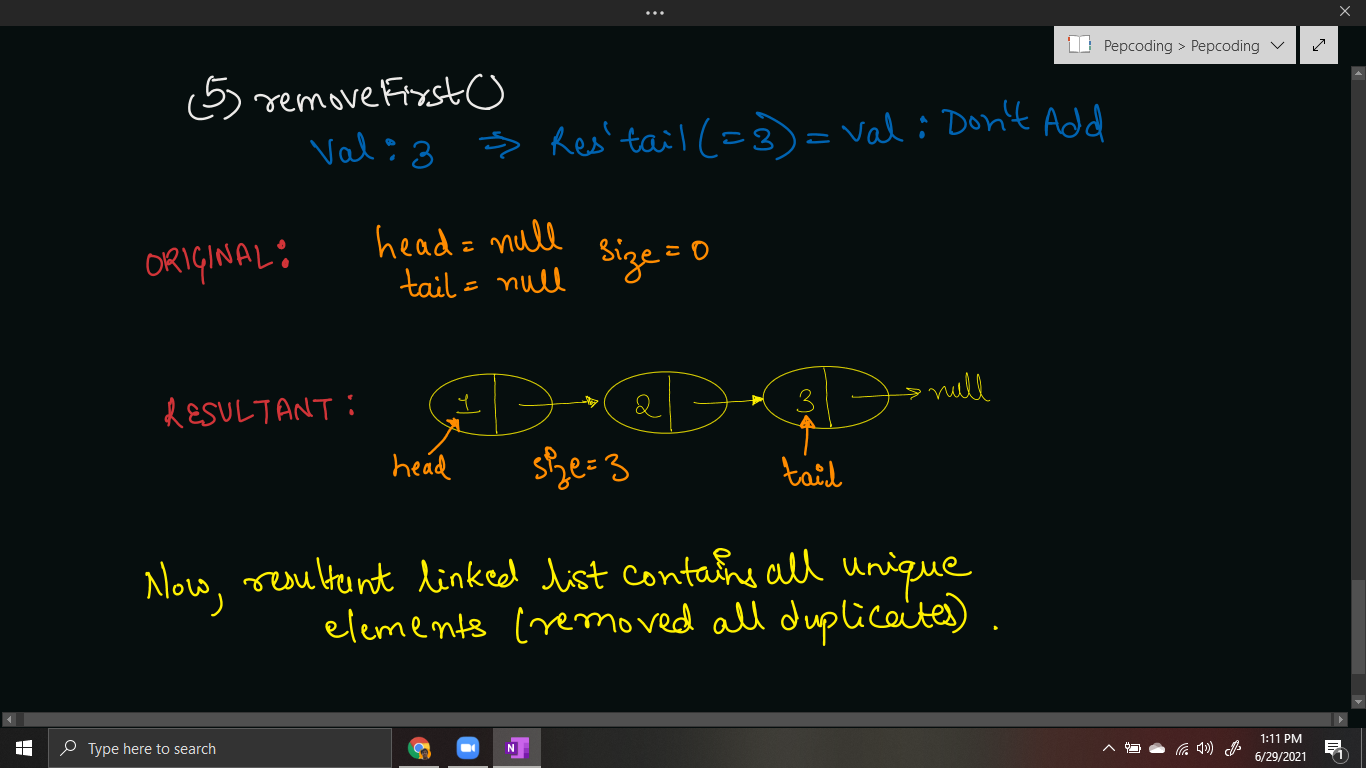 Pepcoding > Pepcoding
(5) removeFirst()
Val : 3 ⇒ Res' tail (=3) = Val : Don't Add
ORIGINAL: head = null size = 0
tail = null
RESULTANT: 1 2 3 null
head size = 3 tail
Now, resultant linked list contains all unique
elements (removed all duplicates).
Type here to search
N
1:11 PM
6/29/2021
1